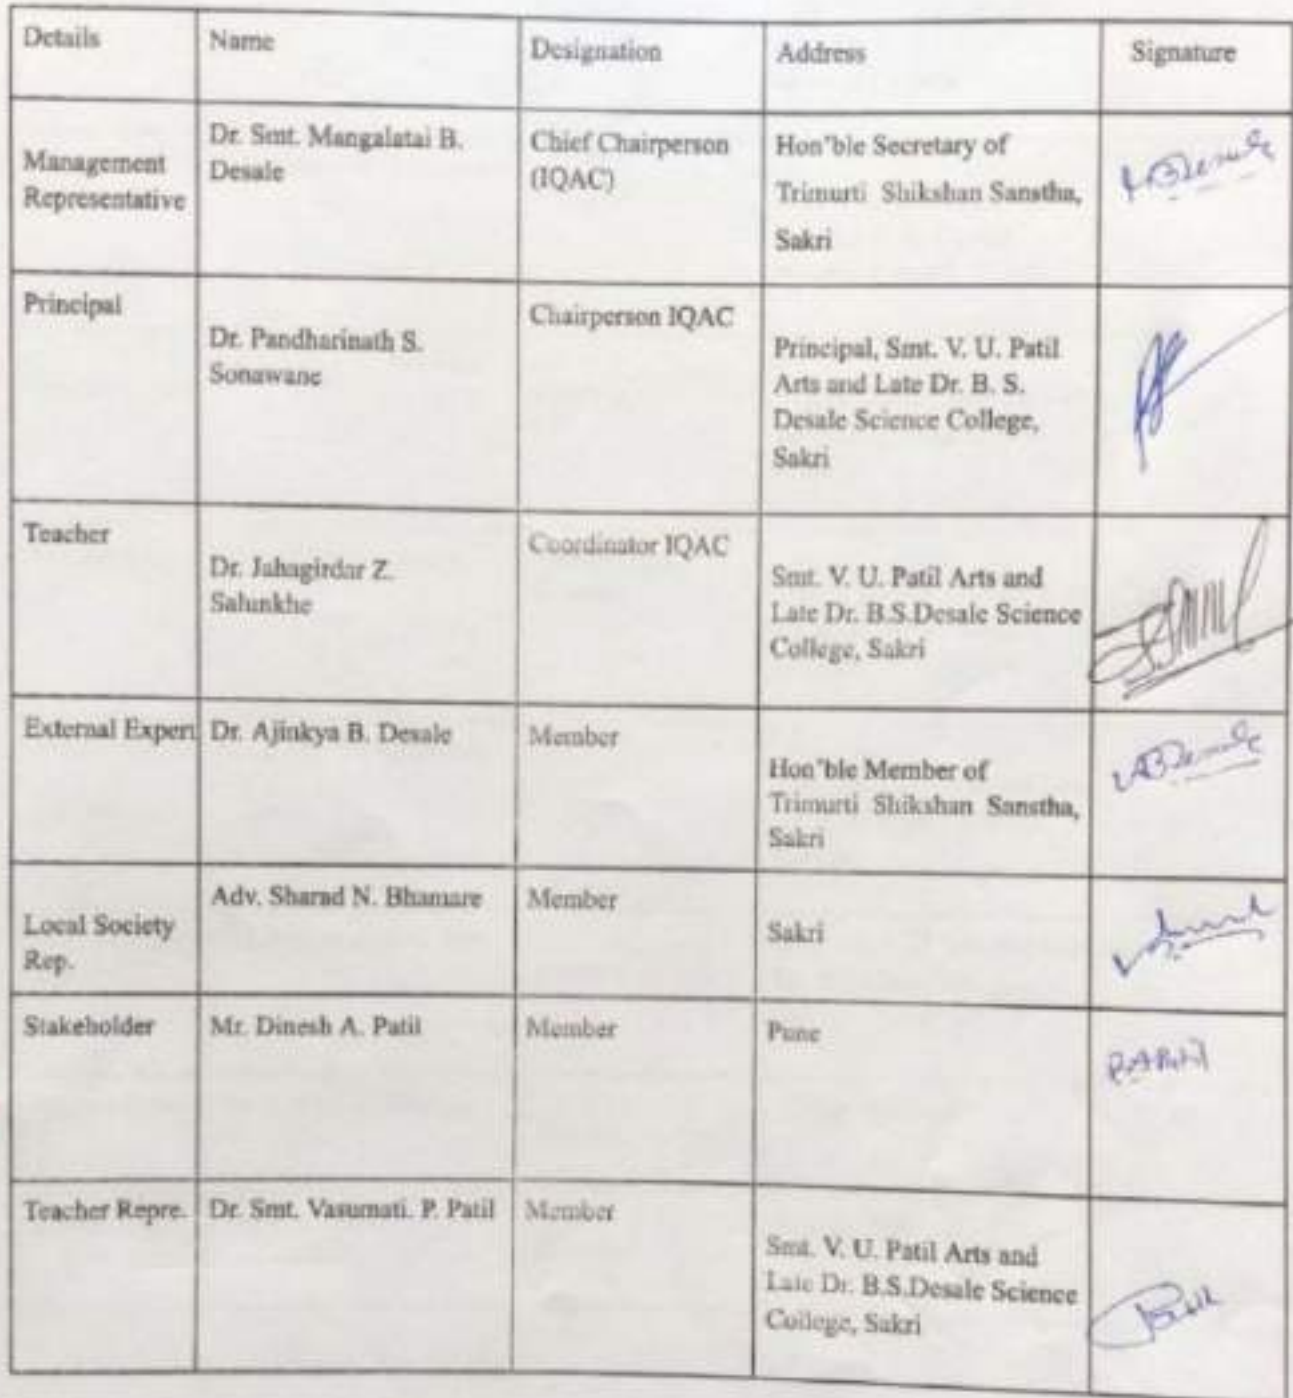 Details Name Designation Address Signature
Management
Representative
Dr. Smt. Mangalatai B.
Desale
Chief Chairperson
(IQAC)
Hon"ble Secretary of
Trimurti Shikshan Sanstha,
Sakri
Principal
Dr. Pandharinath S.
Sonawane
Chairperson IQAC
Principal, Smt. V. U. Patil
Arts and Late Dr. B. S.
Desale Science College,
Sakri
Teacher
Dr. Jahagirdar Z.
Salunkhe
Coordinator IQAC
Smt. V. U. Patil Arts and
Late Dr. B.S.Desale Science
College, Sakri
External Expert
Dr. Ajinkya B. Desale
Member
Hon"ble Member of
Trimurti Shikshan Sanstha,
Sakri
Local Society
Rep.
Adv. Sharad N. Bhamare
Member
Sakri
Stakeholder
Mr. Dinesh A. Patil
Member
Pune
Teacher Repre.
Dr. Smt. Vasumati. P. Patil
Member
Smt. V. U. Patil Arts and
Late Dr. B.S.Desale Science
College, Sakri